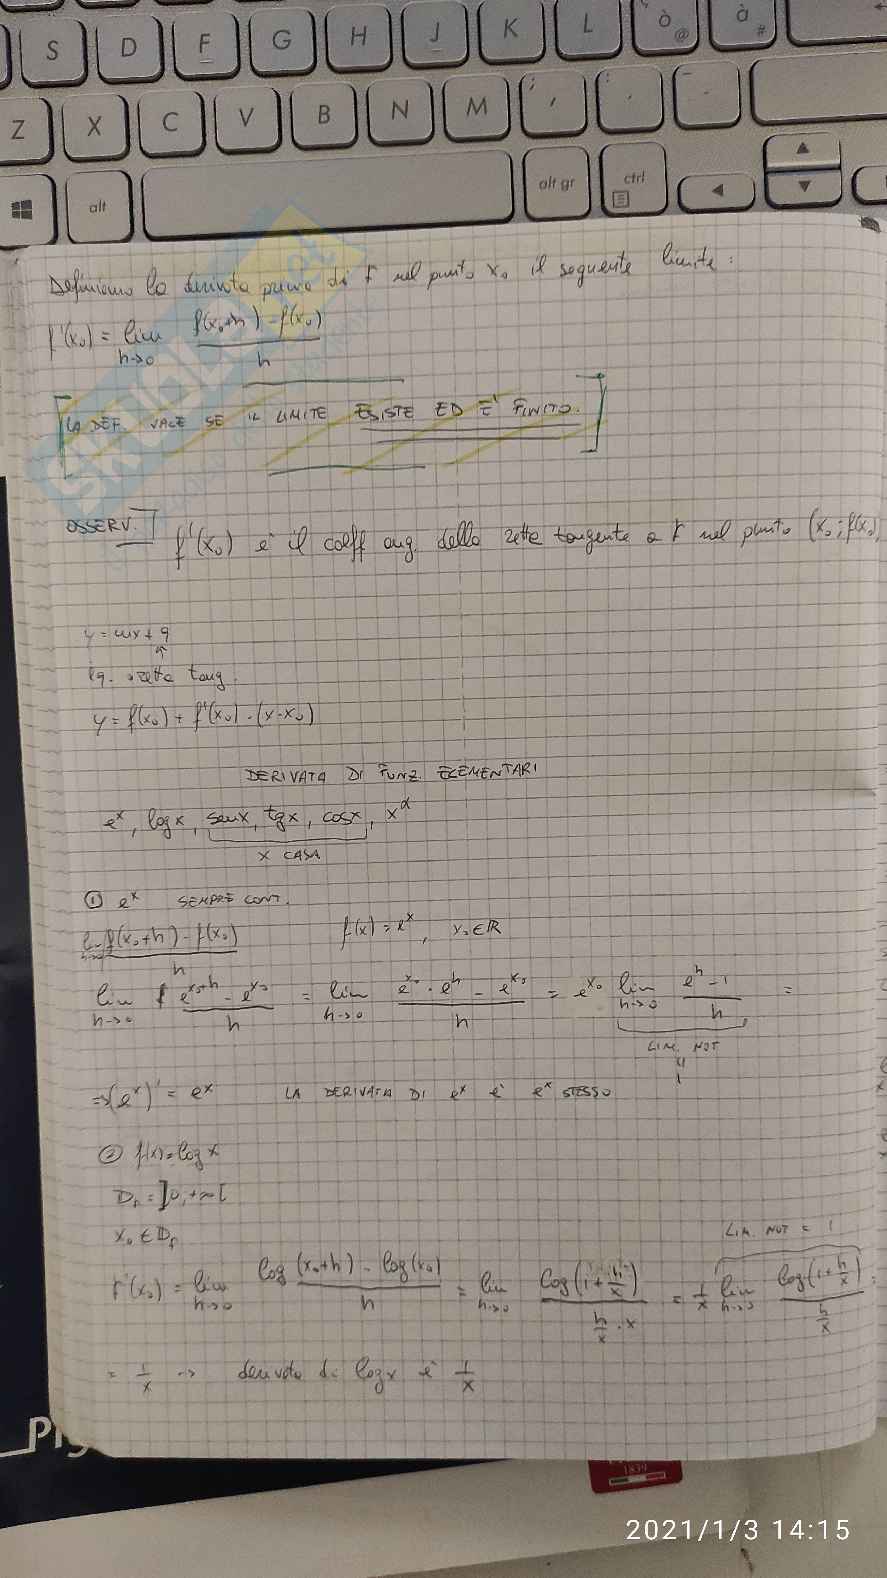 S D F G H J K L ò @ à #
Z X C V B N M ; , : . _ -
alt alt gr ctrl
SKUOLA.net
Definiamo la derivata prima di f nel punto x₀ il seguente limite:
f'(x₀) = lim h→0 f(x₀+h) - f(x₀) / h
[LA DEF. VALE SE IL LIMITE ESISTE ED E' FINITO.]
OSSERV. f'(x₀) è il coeff ang. della retta tangente a f nel punto (x₀; f(x₀)
y = mx + q
eq. retta tang.
y = f(x₀) + f'(x₀) · (x-x₀)
DERIVATA DI FUNZ. ELEMENTARI
eˣ, log x, sen x, tg x, cos x, x^α
X CASA
① eˣ SEMPRE CONT.
lim h→0 f(x₀+h) - f(x₀) / h f(x) = eˣ, x₀ ∈ ℝ
lim h→0 e^(x₀+h) - e^x₀ / h = lim h→0 e^x₀ · e^h - e^x₀ / h = e^x₀ lim h→0 e^h - 1 / h =
LIM. NOT
1
=> (eˣ)' = eˣ LA DERIVATA DI eˣ è eˣ STESSO
② f(x) = log x
D_f = ]0, +∞[
x₀ ∈ D_f
LIM. NOT = 1
f'(x₀) = lim h→0 log(x₀+h) - log(x₀) / h = lim h→0 log(1 + h/x) / h/x · x = 1/x lim h→0 log(1 + h/x) / h/x =
= 1/x → derivata di log x è 1/x
1839
2021/1/3 14:15